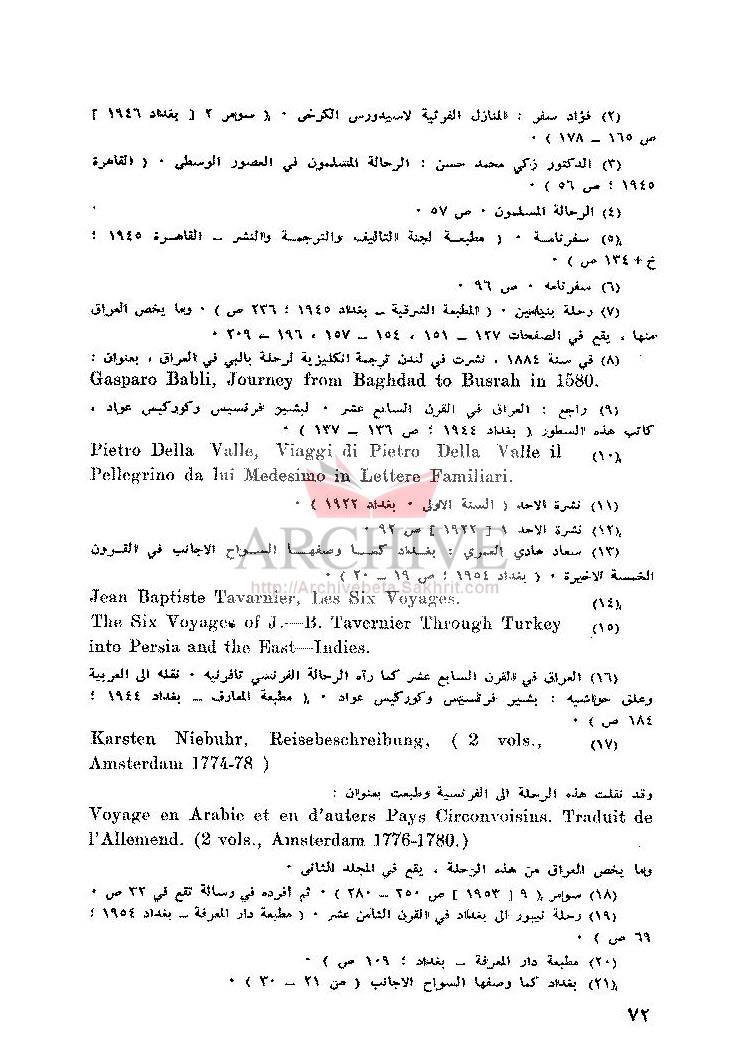 (٢) فؤاد سفر : المنازل الفرثية لاسيدورس الكرخي ٠ ( سومر ٢ [ بغداد ١٩٤٦ ]
ص ١٦٥ – ١٧٨ ) ٠
(٣) الدكتور زكي محمد حسن : الرحالة المسلمون في العصور الوسطى ٠ ( القاهرة
١٩٤٥ ؛ ص ٥٦ ) ٠
(٤) الرحالة المسلمون ٠ ص ٥٧ ٠
(٥) سفرنامة ٠ ( مطبعة لجنة التأليف والترجمة والنشر – القاهرة ١٩٤٥ ؛
خ + ١٣٤ ص ) ٠
(٦) سفرنامه ٠ ص ٩٦ ٠
(٧) رحلة بنيامين ٠ ( المطبعة الشرقية – بغداد ١٩٤٥ ؛ ٢٣٦ ص ) ٠ وما يخص العراق
منها ، يقع في الصفحات ١٢٧ – ١٥١ ، ١٥٤ – ١٥٧ ، ١٩٦ – ٢٠٩ ٠
(٨) في سنة ١٨٨٤ ، نشرت في لندن ترجمة انكليزية لرحلة بالبي في العراق ، بعنوان :
Gasparo Babli, Journey from Baghdad to Busrah in 1580.
(٩) راجع : العراق في القرن السابع عشر ٠ لبشير فرنسيس وكوركيس عواد ،
كاتب هذه السطور ( بغداد ١٩٤٤ ؛ ص ١٣٦ – ١٣٧ ) ٠
(١٠) Pietro Della Valle, Viaggi di Pietro Della Valle il
Pellegrino da lui Medesimo in Lettere Familiari.
(١١) نشرة الاحد ( السنة الاولى ٠ بغداد ١٩٢٢ ) ٠
(١٢) نشرة الاحد ١ [ ١٩٢٢ ] ص ٩٢ ٠
ARCHIVE
(١٣) سعاد هادي العمري : بغداد كما وصفها السواح الاجانب في القرون
الخمسة الاخيرة ٠ ( بغداد ١٩٥٤ ؛ ص ١٩ – ٢٠ ) ٠
http://Archivebeta.Sakhrit.com
(١٤) Jean Baptiste Tavarnier, Les Six Voyages.
(١٥) The Six Voyages of J.—B. Tavernier Through Turkey
into Persia and the East—Indies.
(١٦) العراق في القرن السابع عشر كما رآه الرحالة الفرنسي تافرنيه ٠ نقله الى العربية
وعلق حواشيه : بشير فرنسيس وكوركيس عواد ٠ ( مطبعة المعارف – بغداد ١٩٤٤ ؛
١٨٤ ص ) ٠
(١٧) Karsten Niebuhr, Reisebeschreibung, ( 2 vols.,
Amsterdam 1774-78 )
وقد نقلت هذه الرحلة الى الفرنسية وطبعت بعنوان :
Voyage en Arabie et en d'auters Pays Circonvoisins. Traduit de
l'Allemend. (2 vols., Amsterdam 1776-1780.)
وما يخص العراق من هذه الرحلة ، يقع في المجلد الثاني ٠
(١٨) سومر ( ٩ [ ١٩٥٣ ] ص ٢٥٠ – ٢٨٠ ) ٠ ثم افرده في رسالة تقع في ٣٢ ص ٠
(١٩) رحلة نيبور الى بغداد في القرن الثامن عشر ٠ ( مطبعة دار المعرفة – بغداد ١٩٥٤ ؛
٦٩ ص ) ٠
(٢٠) مطبعة دار المعرفة – بغداد ؛ ١٠٩ ص ) ٠
(٢١) بغداد كما وصفها السواح الاجانب ( ص ٢١ – ٣٠ ) ٠
٧٢